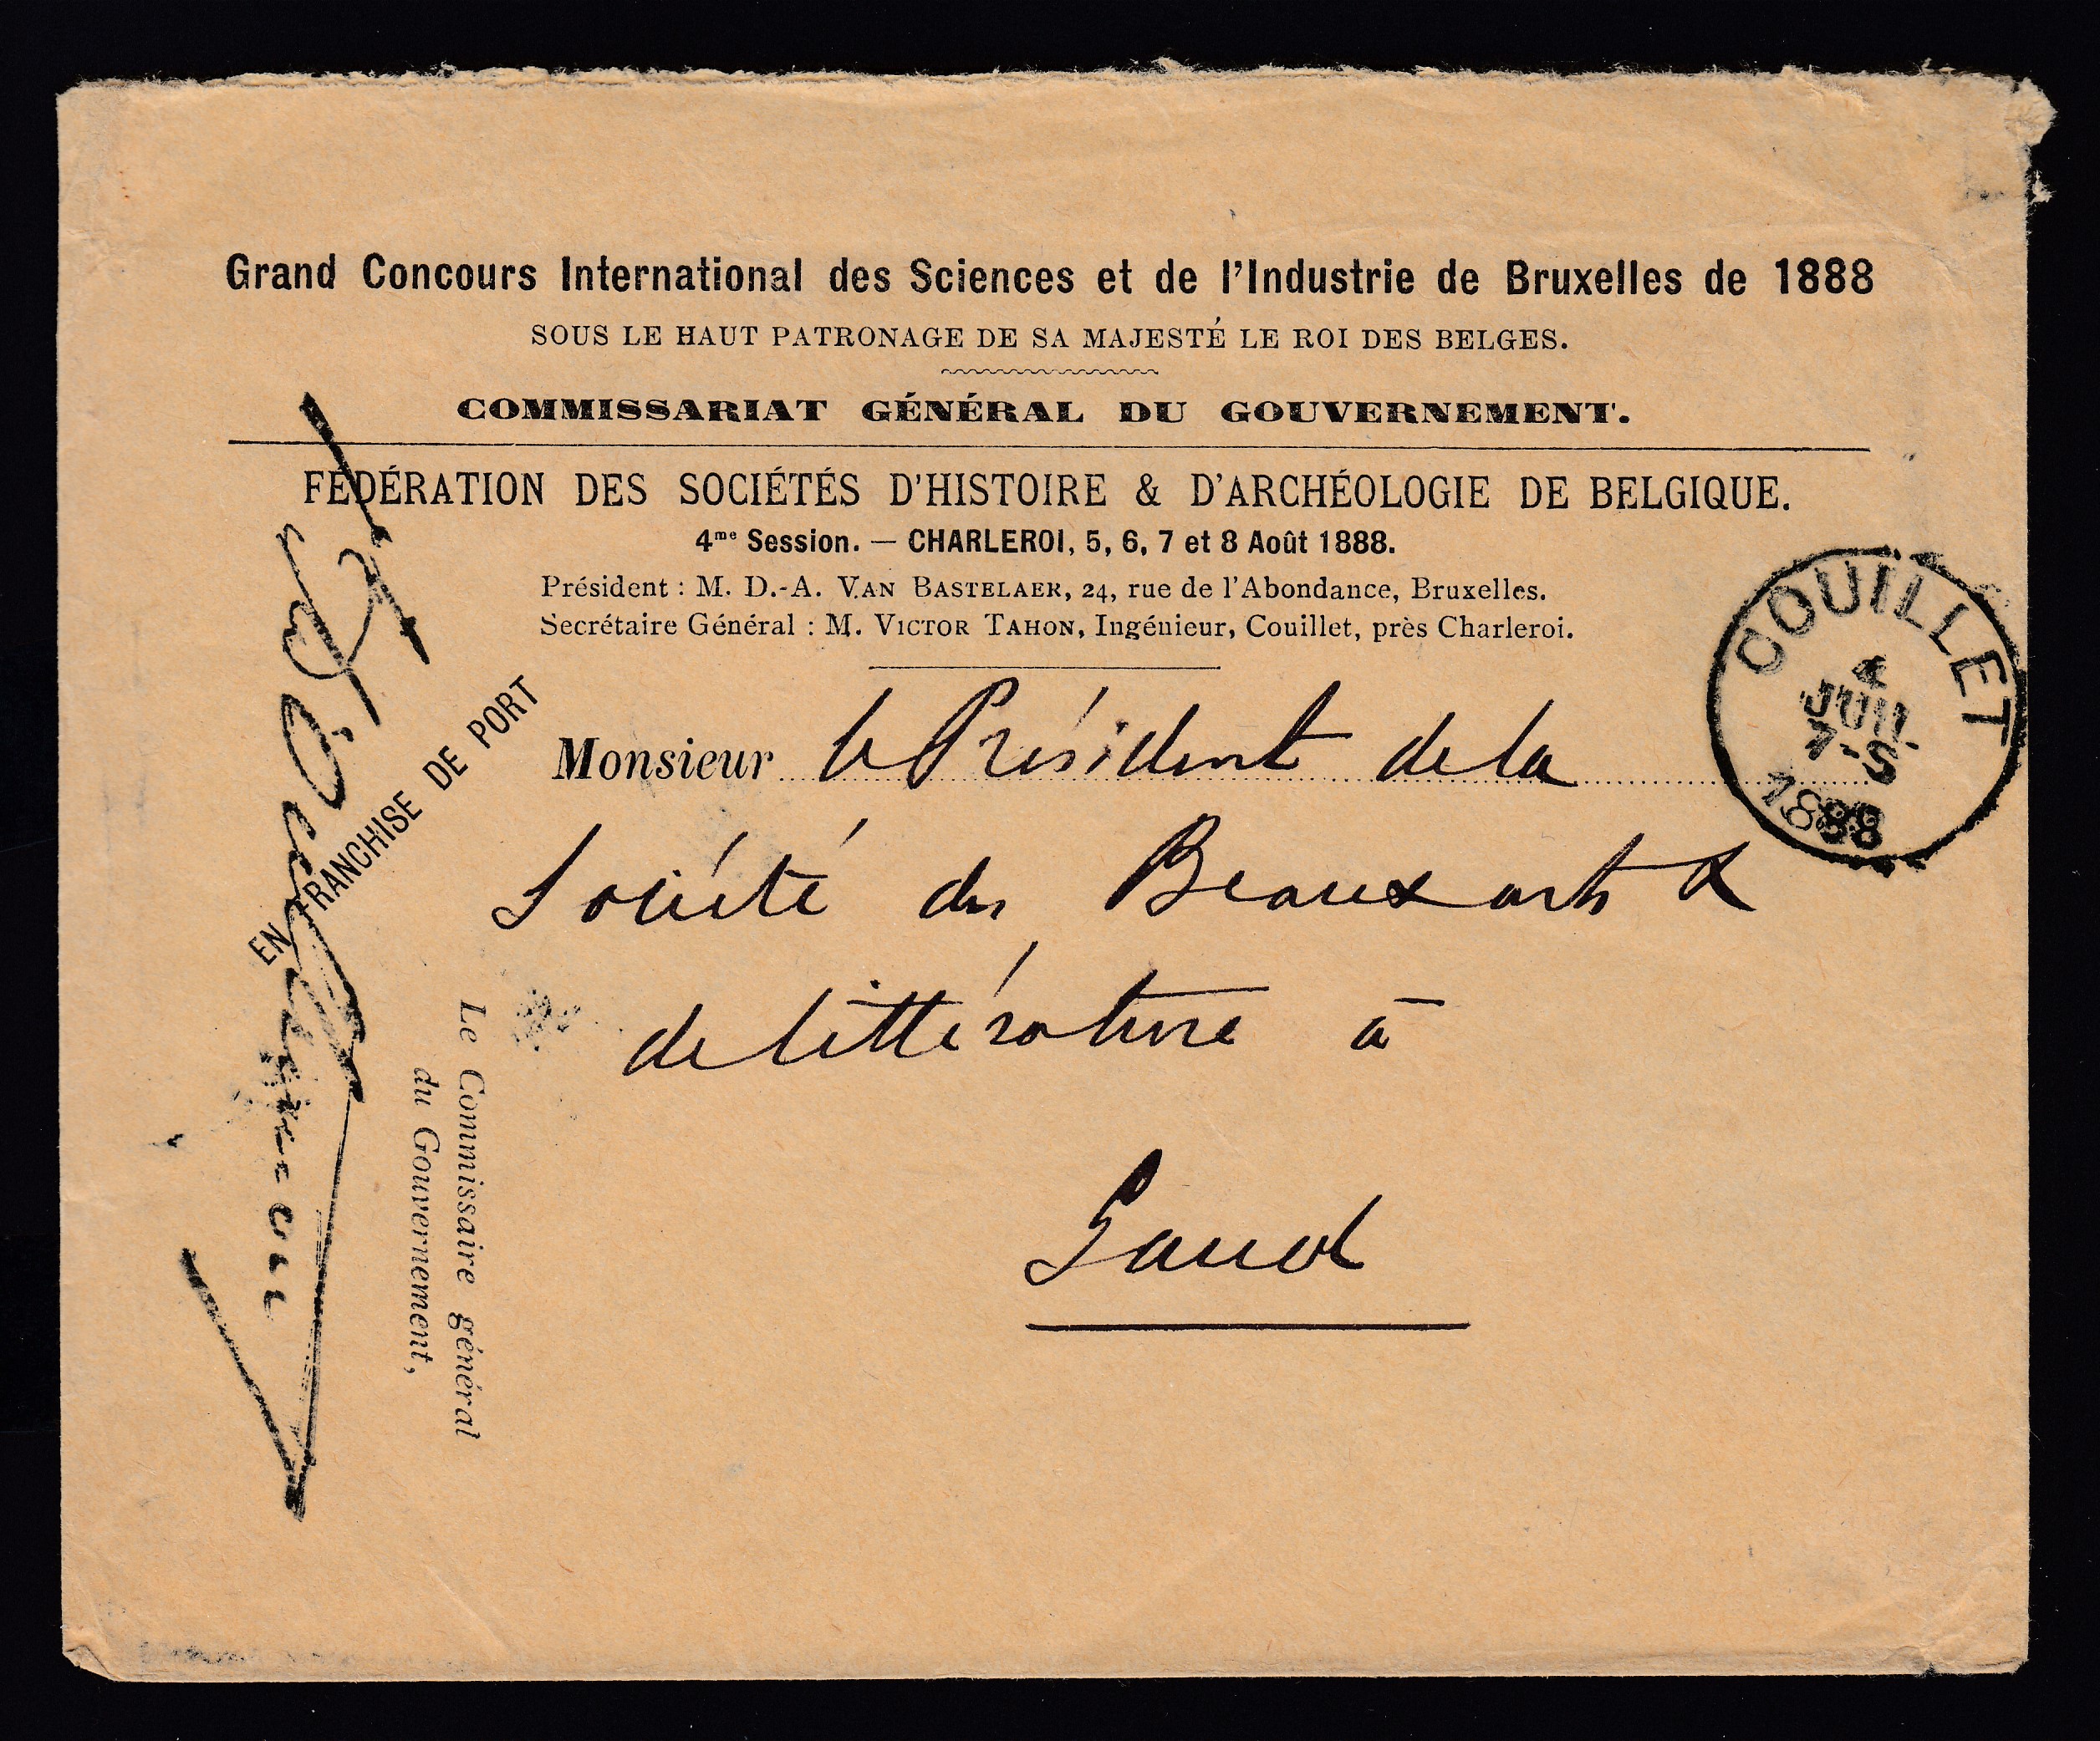 Grand Concours International des Sciences et de l'Industrie de Bruxelles de 1888
SOUS LE HAUT PATRONAGE DE SA MAJESTÉ LE ROI DES BELGES.
COMMISSARIAT GÉNÉRAL DU GOUVERNEMENT.
FÉDÉRATION DES SOCIÉTÉS D'HISTOIRE & D'ARCHÉOLOGIE DE BELGIQUE.
4me Session. — CHARLEROI, 5, 6, 7 et 8 Août 1888.
Président : M. D.-A. VAN BASTELAER, 24, rue de l'Abondance, Bruxelles.
Secrétaire Général : M. VICTOR TAHON, Ingénieur, Couillet, près Charleroi.
COUILLET
4
JUIL
7-S
1888
EN FRANCHISE DE PORT
Monsieur le Président de la
Société des Beaux arts &
de littérature à
Gand
Le Commissaire général
du Gouvernement,